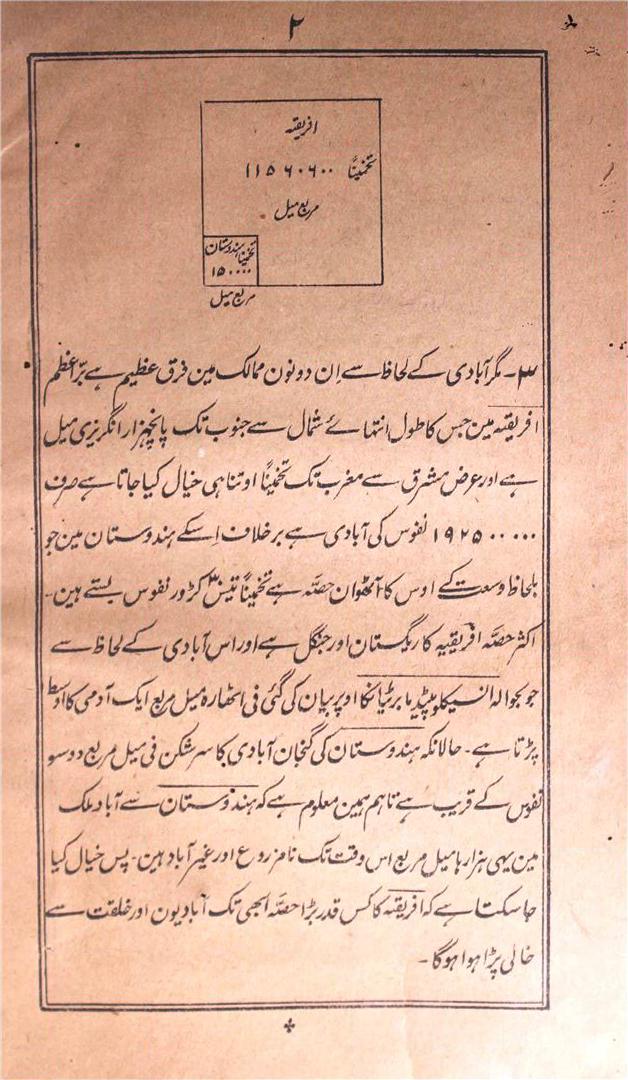 ۲
افریقہ
تخمیناً ۱۱۵۶۰۶۰۰
مربع میل
تخمیناً ہندوستان
۱۵۰۰۰۰۰
مربع میل
۳۔ مگر آبادی کے لحاظ سے اِن دونون ممالک مین فرق عظیم ہے برّ اعظم
افریقہ مین جس کا طول انتہائے شمال سے جنوب تک پانچہزار انگریزی میل
ہے اور عرض مشرق سے مغرب تک تخمیناً اوتنا ہی خیال کیا جاتا ہے صرف
۱۹۲۵۰۰۰۰۰ نفوس کی آبادی ہے برخلاف اِسکے ہندوستان مین جو
بلحاظ وسعت کے اوس کا آٹھوان حصّہ ہے تخمیناً تیس کڑور نفوس بستے ہین۔
اکثر حصّہ افریقیہ کا ریگستان اور جنگل ہے اور اس آبادی کے لحاظ سے
جو بحوالہ انسیکلوپیڈیا برٹیانکا اوپر بیان کی گئی فی اٹھارہ میل مربع ایک آدمی کا اوسط
پڑتا ہے۔ حالانکہ ہندوستان کی گنجان آبادی کا سرشکن فی میل مربع دو سو
نفوس کے قریب ہے تاہم ہمین معلوم ہے کہ ہندوستان سے آباد ملک
مین بہی ہزارہا میل مربع اس وقت تک نامزروع اور غیر آباد ہین۔ پس خیال کیا
جا سکتا ہے کہ افریقہ کا کس قدر بڑا حصّہ ابھی تک آبادیون اور خلقت سے
خالی پڑا ہوا ہوگا۔